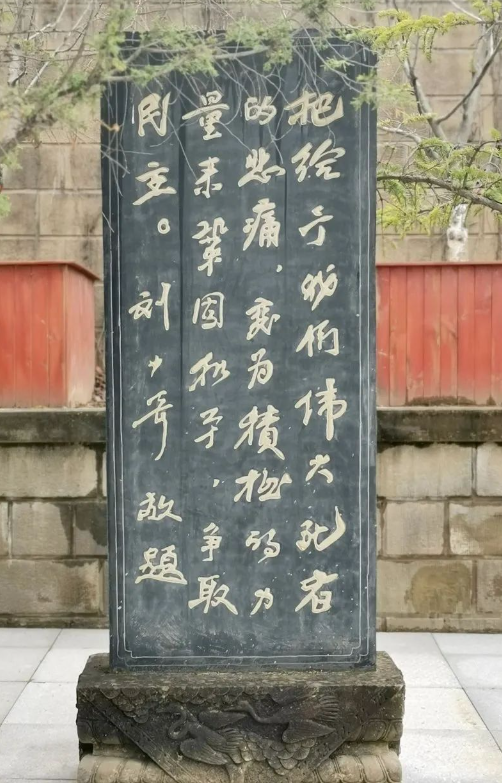 把给于我们伟大死者
的悲痛，变为積极的力
量来鞏固和平，争取
民主。刘少奇敬題